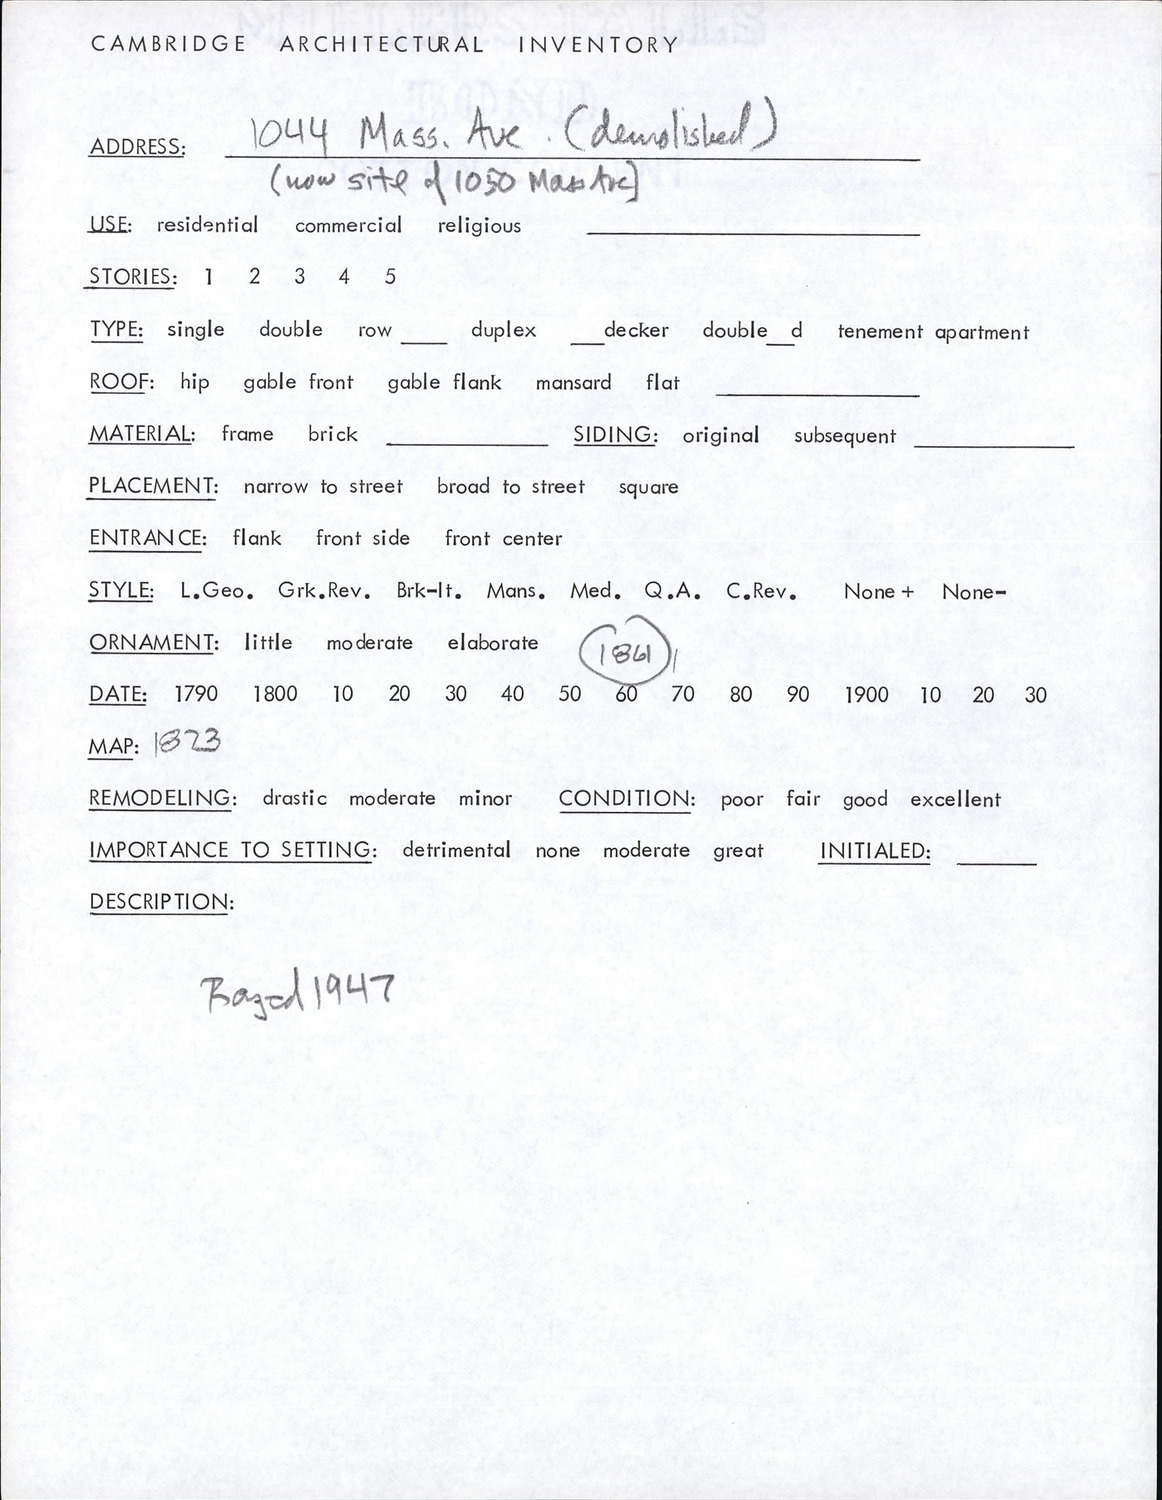 CAMBRIDGE ARCHITECTURAL INVENTORY
ADDRESS: 1044 Mass. Ave. (demolished)
(now site of 1050 Mass Ave)
USE: residential commercial religious
STORIES: 1 2 3 4 5
TYPE: single double row ____ duplex ___decker double__d tenement apartment
ROOF: hip gable front gable flank mansard flat
MATERIAL: frame brick SIDING: original subsequent
PLACEMENT: narrow to street broad to street square
ENTRANCE: flank front side front center
STYLE: L.Geo. Grk.Rev. Brk-It. Mans. Med. Q.A. C.Rev. None+ None-
ORNAMENT: little moderate elaborate 1861
DATE: 1790 1800 10 20 30 40 50 60 70 80 90 1900 10 20 30
MAP: 1873
REMODELING: drastic moderate minor CONDITION: poor fair good excellent
IMPORTANCE TO SETTING: detrimental none moderate great INITIALED:
DESCRIPTION:
Razed 1947